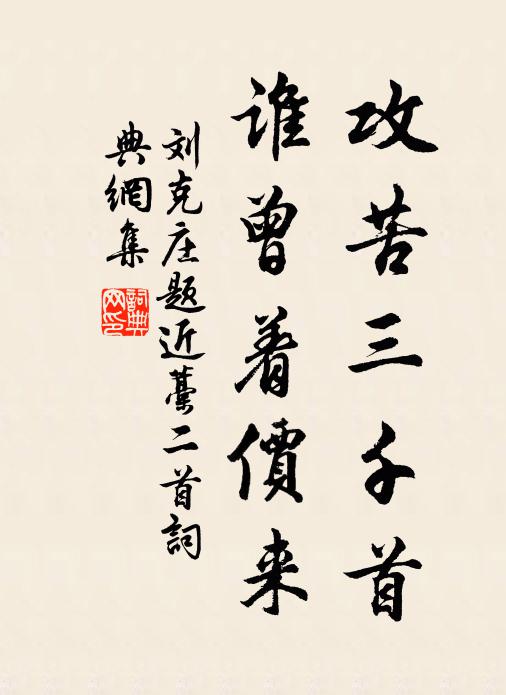 攻苦三千首
谁曾着價来
刘克庄题近藁二首詞
典網集
詞典
网印